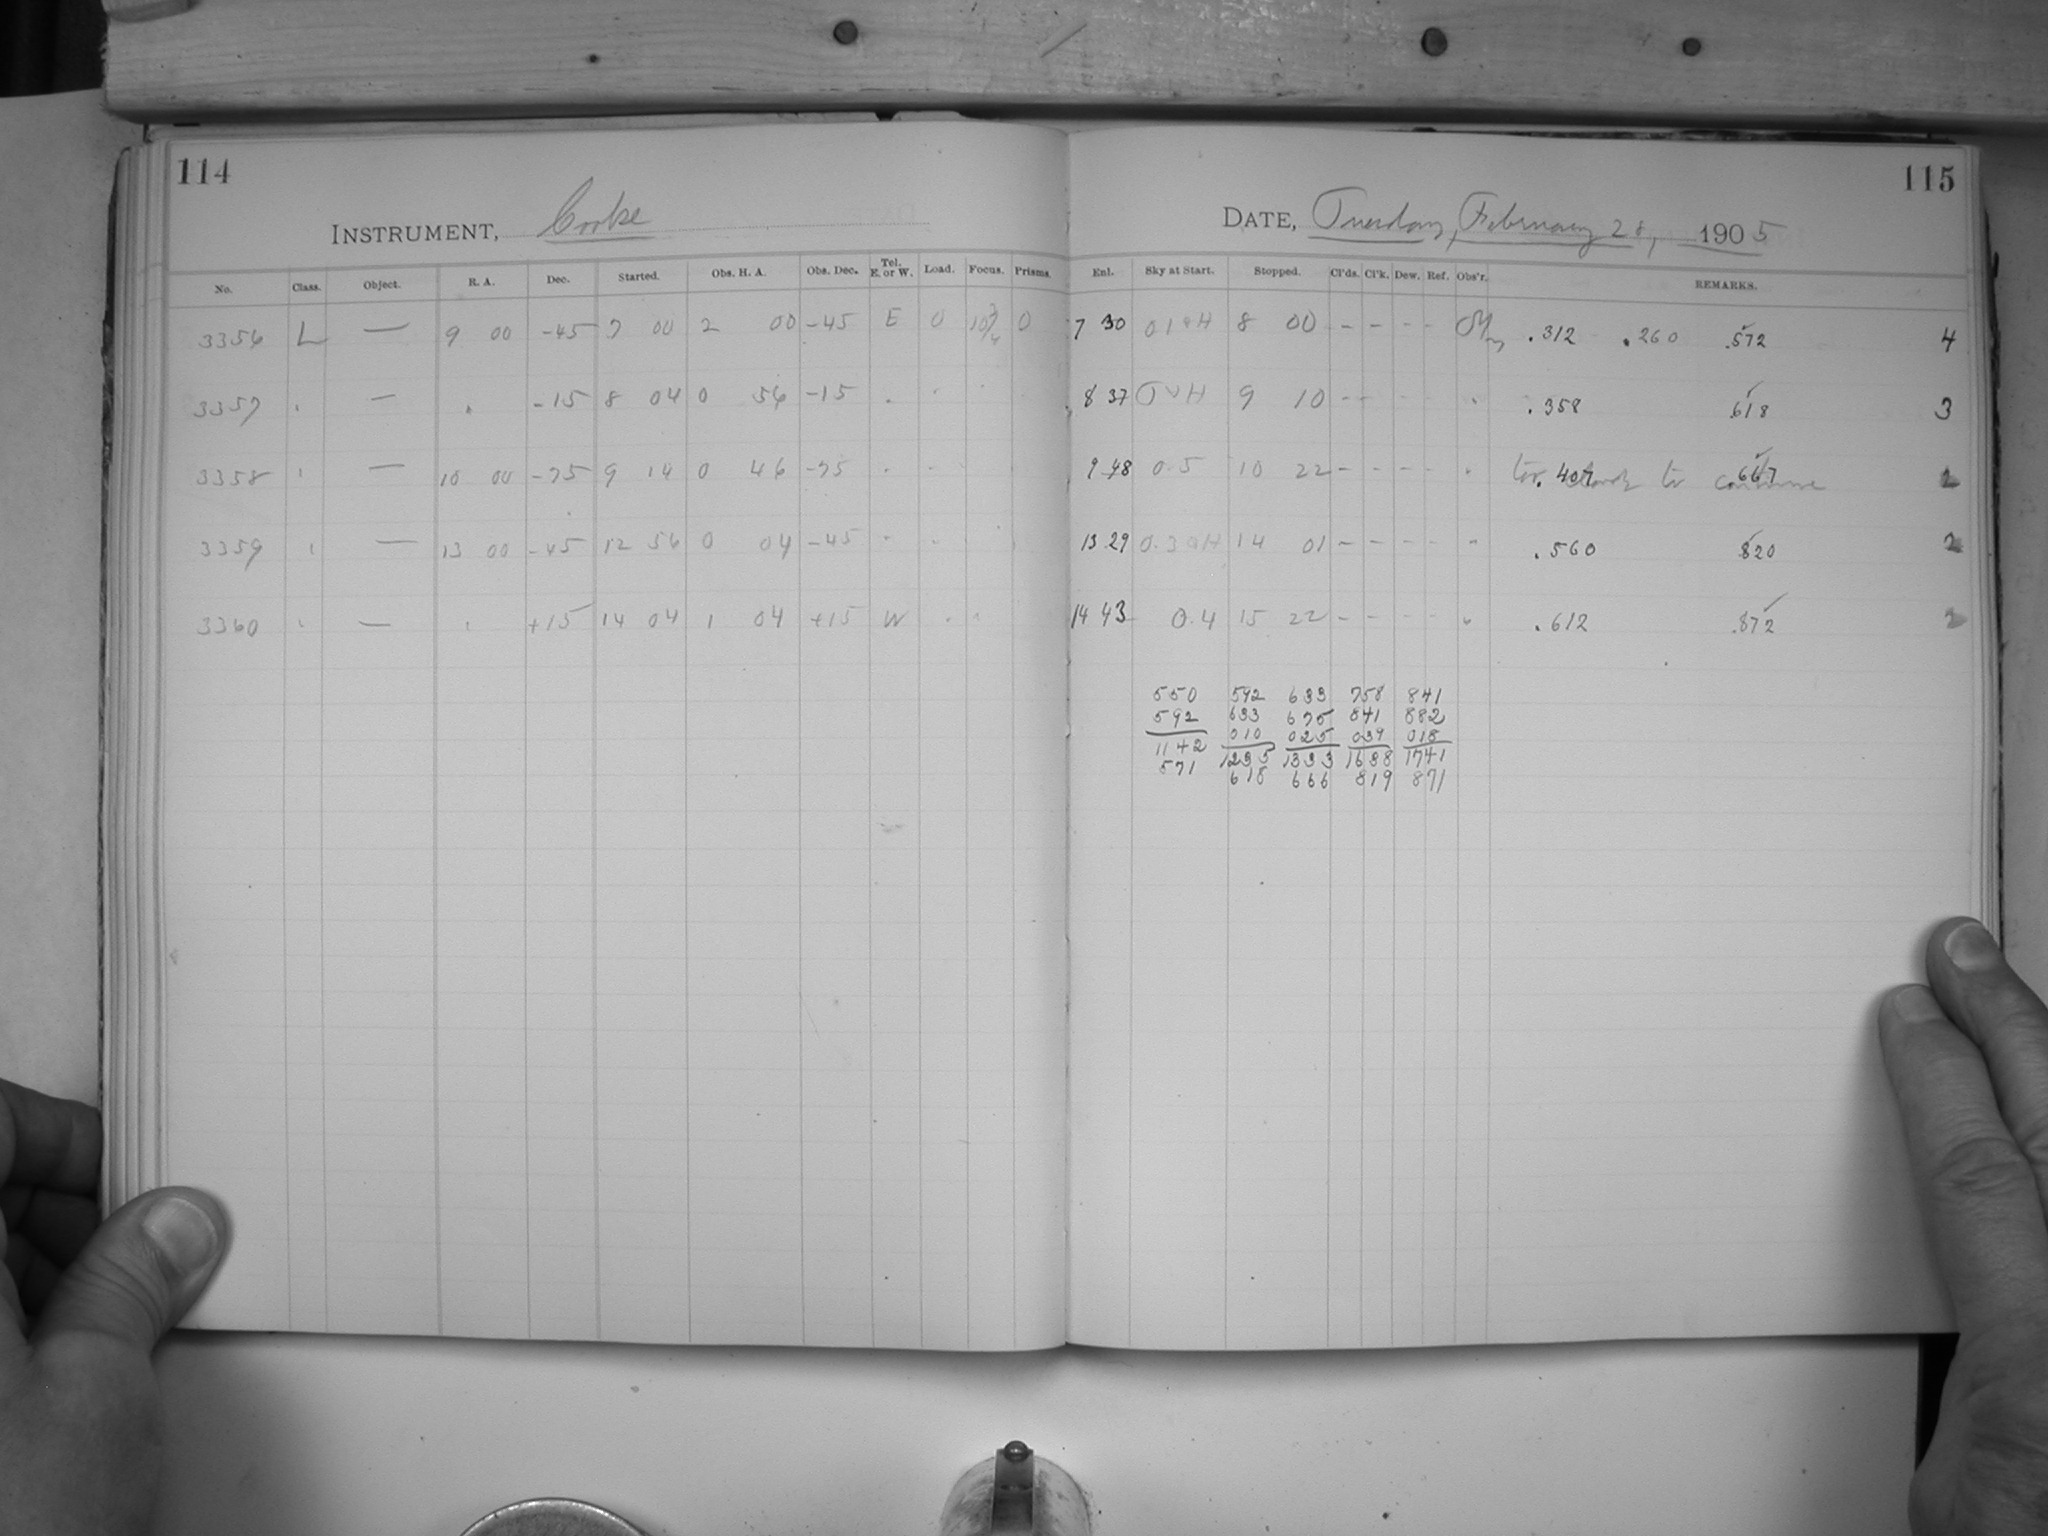 114
INSTRUMENT, Cooke
No. Class. Object. R. A. Dec. Started. Obs. H. A. Obs. Dec. Tel. E. or W. Load. Focus. Prisms.
3356 L — 9 00 -45 7 00 2 00 -45 E 0 0
3357 — -15 8 04 0 56 -15
3358 — 10 00 -75 9 14 0 46 -75
3359 — 13 00 -45 12 56 0 04 -45
3360 — +15 14 04 1 04 +15 W
115
DATE, Tuesday, February 28, 1905
Enl. Sky at Start. Stopped. Cl'ds. Cl'k. Dew. Ref. Obs'r. REMARKS.
7 30 8 00 - - - - .312 .260 .572 4
8 37 9 10 - - - - .358 .618 3
9 48 0.5 10 22 - - - - too cloudy to continue .407 .667 2
13 29 14 01 - - - - .560 .820 2
14 43 0.4 15 22 - - - - .612 .872 2
550 592 633 758 841
592 633 675 841 882
010 025 039 018
1142 1235 1333 1638 1741
571 618 666 819 871